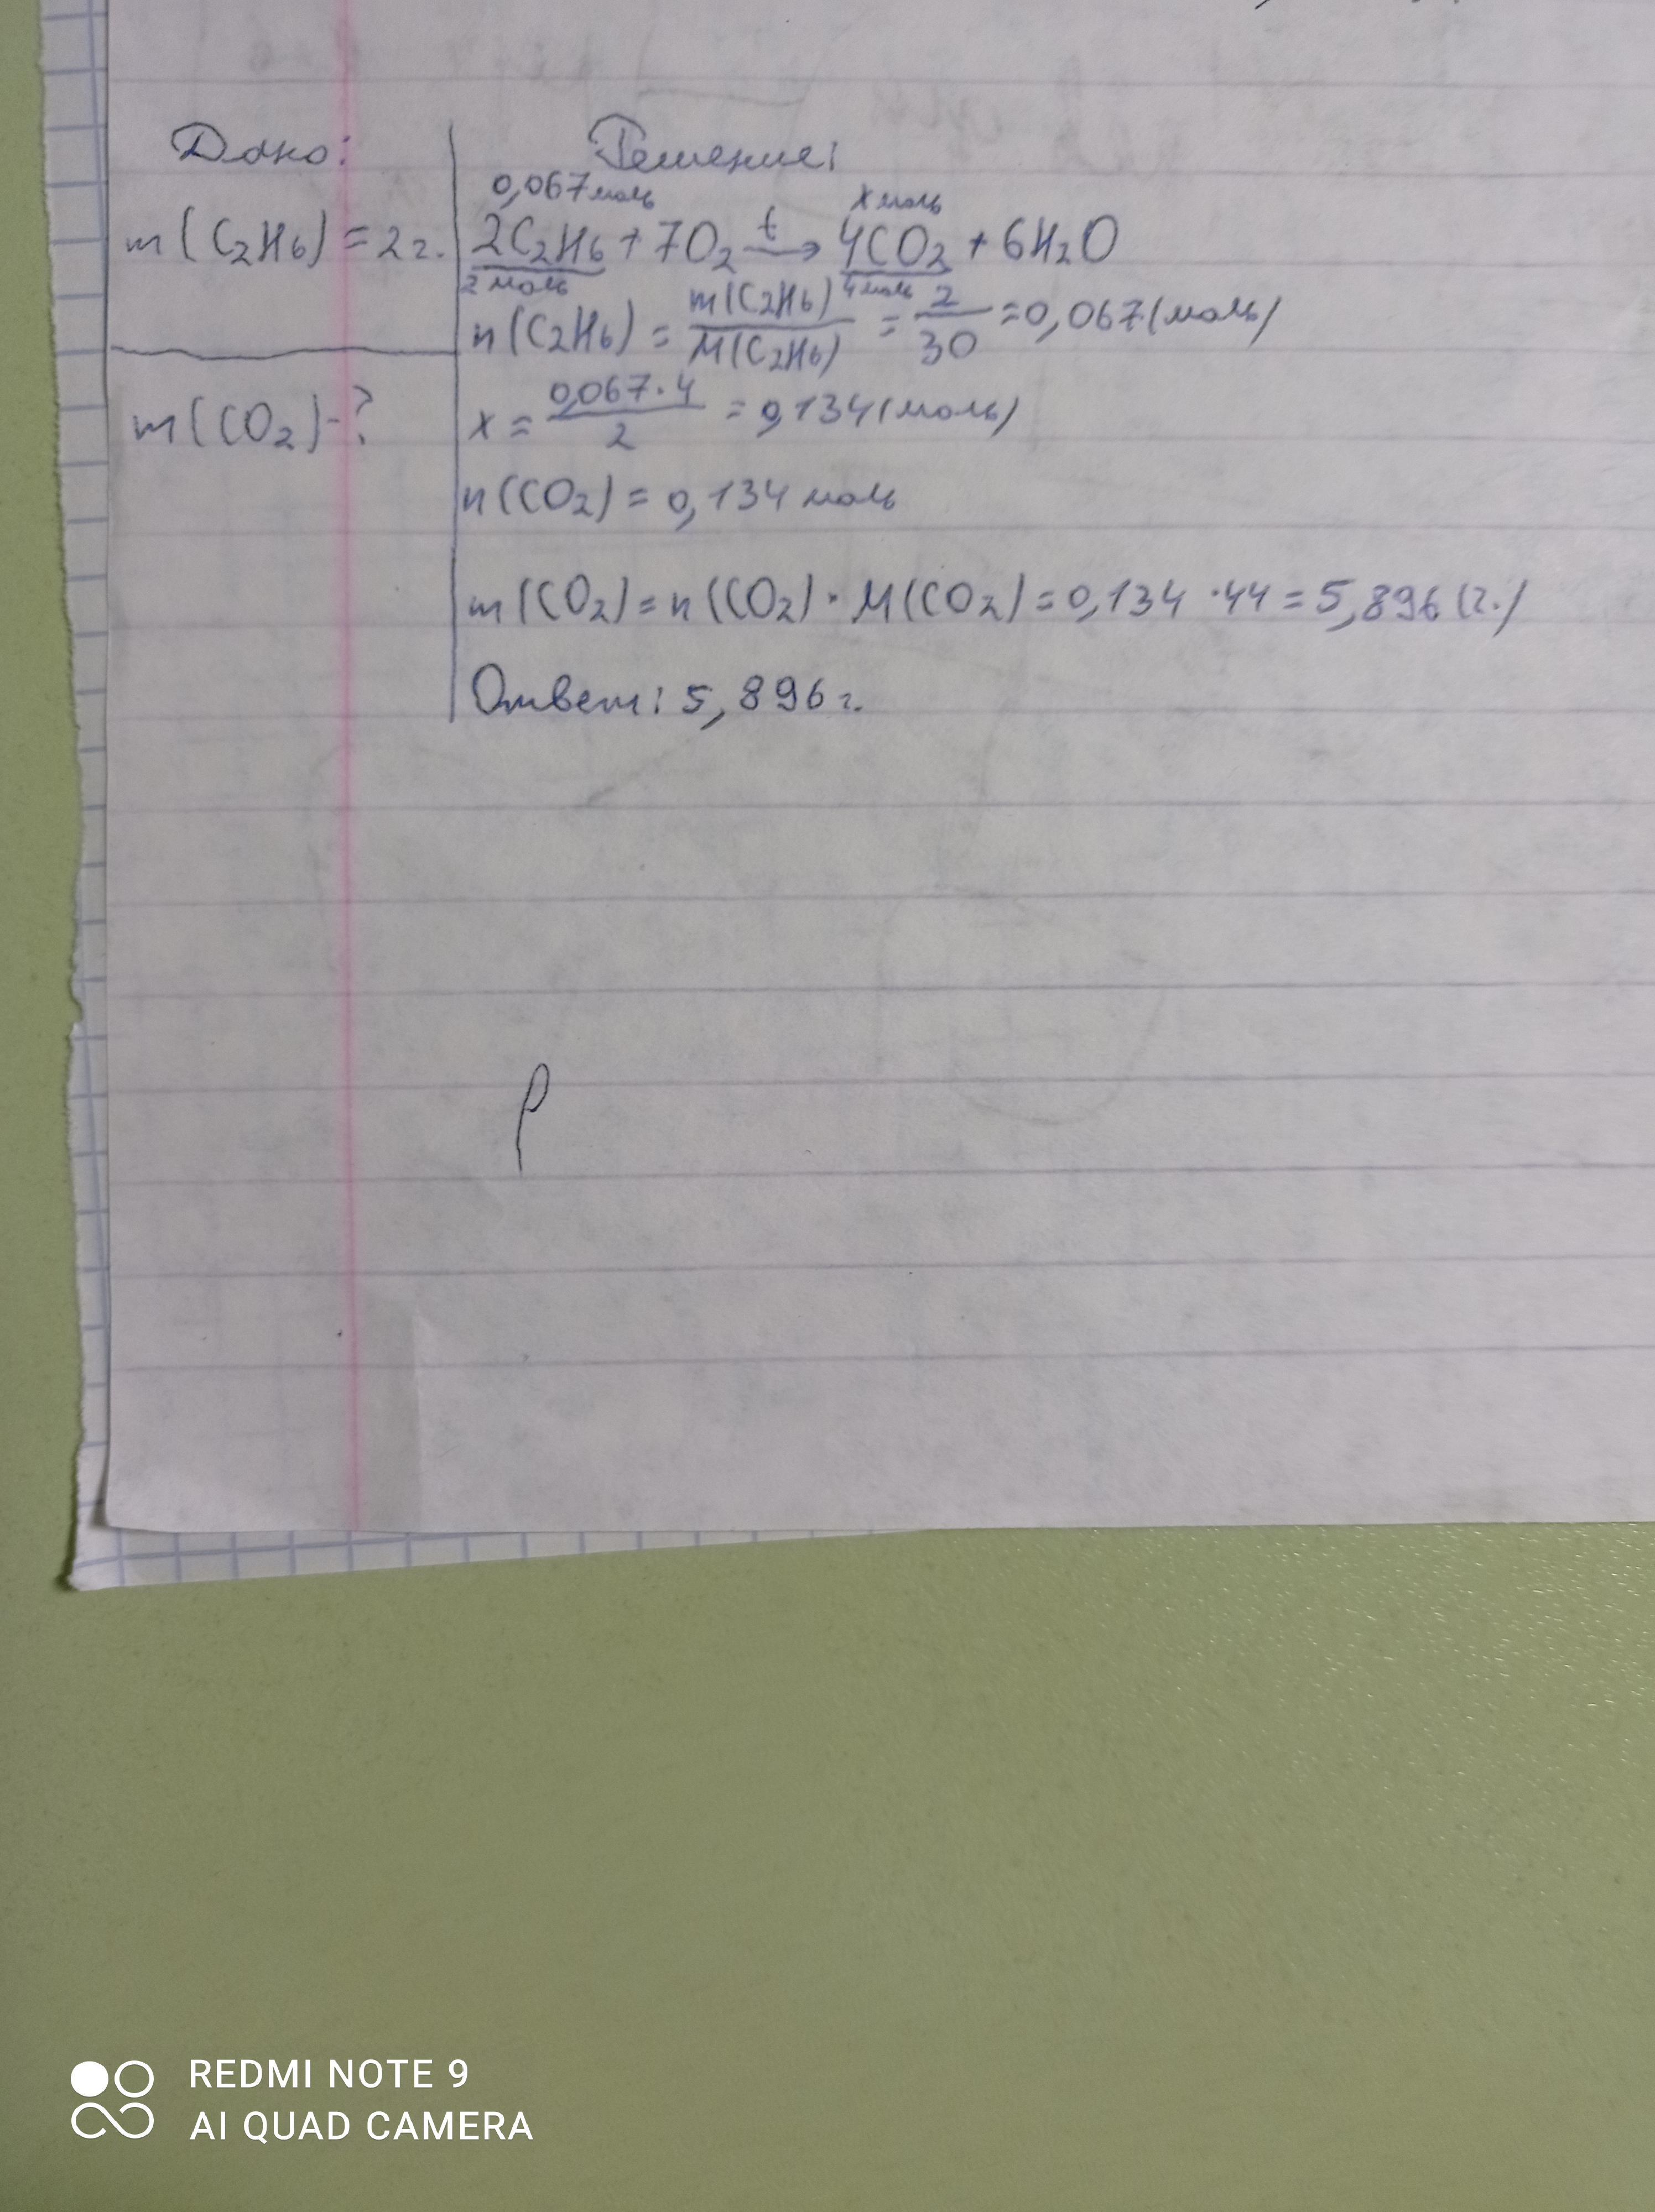 Дано:
m(C₂H₆) = 2 г.
m(CO₂) - ?
Решение:
0,067 моль x моль
2C₂H₆ + 7O₂ t→ 4CO₂ + 6H₂O
2 моль 4 моль
n(C₂H₆) = m(C₂H₆)/M(C₂H₆) = 2/30 = 0,067 (моль)
x = 0,067·4/2 = 0,134 (моль)
n(CO₂) = 0,134 моль
m(CO₂) = n(CO₂) · M(CO₂) = 0,134 · 44 = 5,896 (г.)
Ответ: 5,896 г.
ρ
REDMI NOTE 9
AI QUAD CAMERA